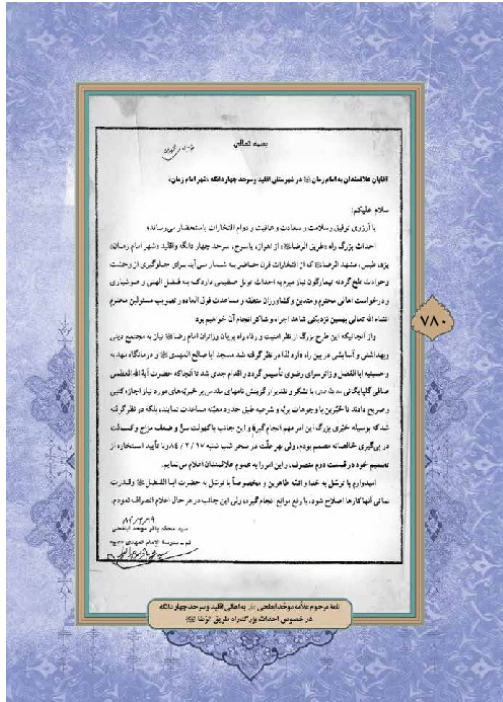 بسمه تعالی
آقایان علاقمندان به امام زمان ﷻ در شهرستان اقلید و سرحد چهار دانگه «شهر امام زمان»
سلام علیکم؛
با آرزوی توفیق و سلامت و سعادت و عاقبت و دوام افتخارات باستحضار می‌رساند؛
احداث بزرگ راه «طریق الرضا» از اهواز، یاسوج، سرحد چهار دانگه و اقلید «شهر امام زمان»
یزد، طبس، مشهد الرضا که از افتخارات قرن حاضر به شمار می‌آید برای جلوگیری از وحشت
و حوادث تلخ گردنه تیمارگون نیاز مبرم به احداث تونل عظیمی دارد که به فضل الهی و
و درخواست اهالی محترم و متدین و کشاورزان منطقه و مساعدت فوق العاده و تصویب مسئولین محترم
انشاء الله تعالی بهمین نزدیکی شاهد اجراء و شاکر انجام آن خواهیم بود
و از آنجائیکه این طرح بزرگ از نظر امنیت و رفاه راه پریان و زائران امام رضا نیاز به مجتمع دینی
و بهداشتی و آسایشی در بین راه دارد لذا در نظر گرفته شد مسجد ابا صالح المهدی و درمانگاه مهد به
و حسینیه ابا الفضل و زائرسرای رضوی تأسیس گردد و اقدام جدی شد تا آنجا که حضرت آیة الله العظمی
صافی گلپایگانی با تشکر و تقدیر از گزینش نامهای مقدس بر خیریه‌های مورد نیاز اجازه کتبی
و صریح دادند تا خیرین با وجوهات بریه و شرعیه طبق حدود معینه مساعدت نمایند، بلکه در نظر گرفته
شد که بوسیله خیری بزرگ این امر مهم انجام گیرد و این جانب با کهولت سن و ضعف مزاج و کسالت
در پی‌گیری خالصانه مصمم بودم، ولی بهر علت در سحر شب شنبه ۸۴/۲/۱۷ و با تأیید استخاره از
تصمیم خود در قسمت دوم منصرف، و این امر را به عموم علاقمندان اعلام می‌نمایم.
امیدوارم با توسل به خدا و ائمه طاهرین و مخصوصاً با توسل به حضرت ابا الفضل و قدرت
نمائی آنها کارها اصلاح شود، با رفع موانع انجام گیرد، ولی این جانب در هر حال اعلام انصراف نمودم.
سید محمد باقر موحد ابطحی
قم ـ مدرسة الإمام المهدی
۷۸۰
نامۀ مرحوم علامه موحد ابطحی به اهالی اقلید و سرحد چهار دانگه
در خصوص احداث بزرگراه طریق الرضا